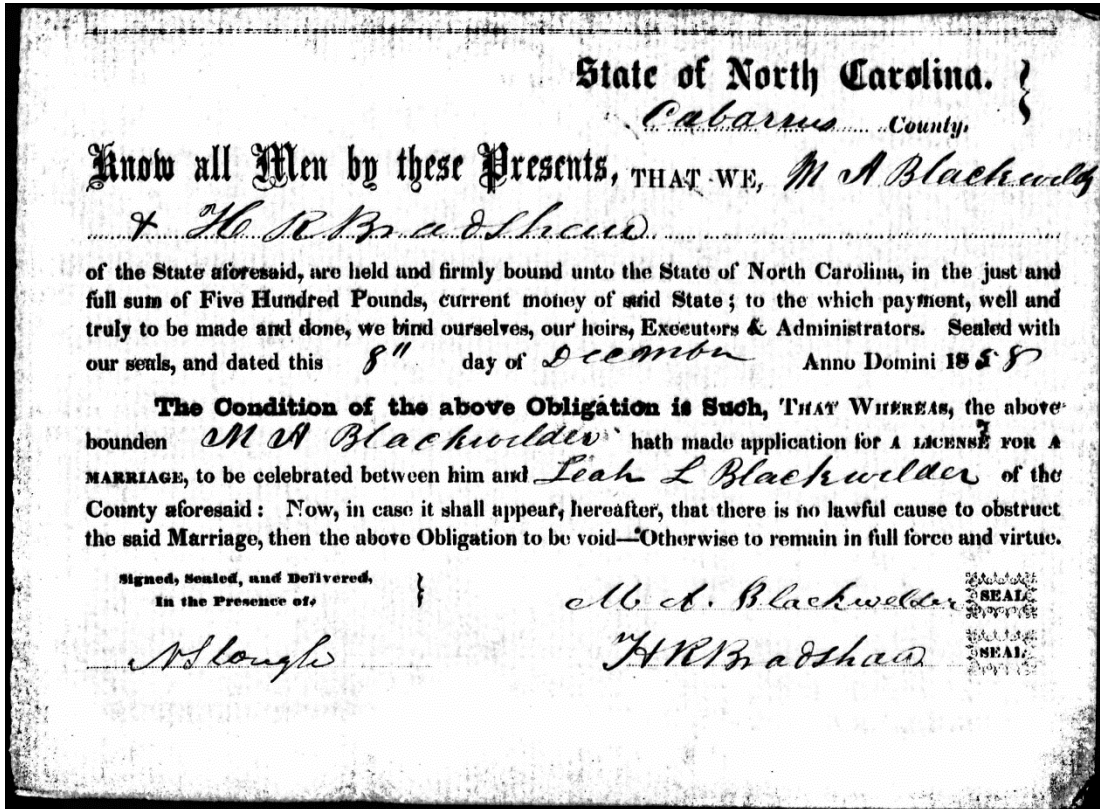 State of North Carolina. }
Cabarrus County.
Know all Men by these Presents, THAT WE, M A Blackwilder
& H R Bradshaw
of the State aforesaid, are held and firmly bound unto the State of North Carolina, in the just and
full sum of Five Hundred Pounds, current money of said State; to the which payment, well and
truly to be made and done, we bind ourselves, our heirs, Executors & Administrators. Sealed with
our seals, and dated this 8" day of December Anno Domini 1858
The Condition of the above Obligation is Such, THAT WHEREAS, the above
bounden M A Blackwilder hath made application for A LICENSE FOR A
MARRIAGE, to be celebrated between him and Leah L Blackwilder of the
County aforesaid: Now, in case it shall appear, hereafter, that there is no lawful cause to obstruct
the said Marriage, then the above Obligation to be void—Otherwise to remain in full force and virtue.
Signed, Sealed, and Delivered, }
In the Presence of
M. A. Blackwelder SEAL
N Slough H R Bradshaw SEAL